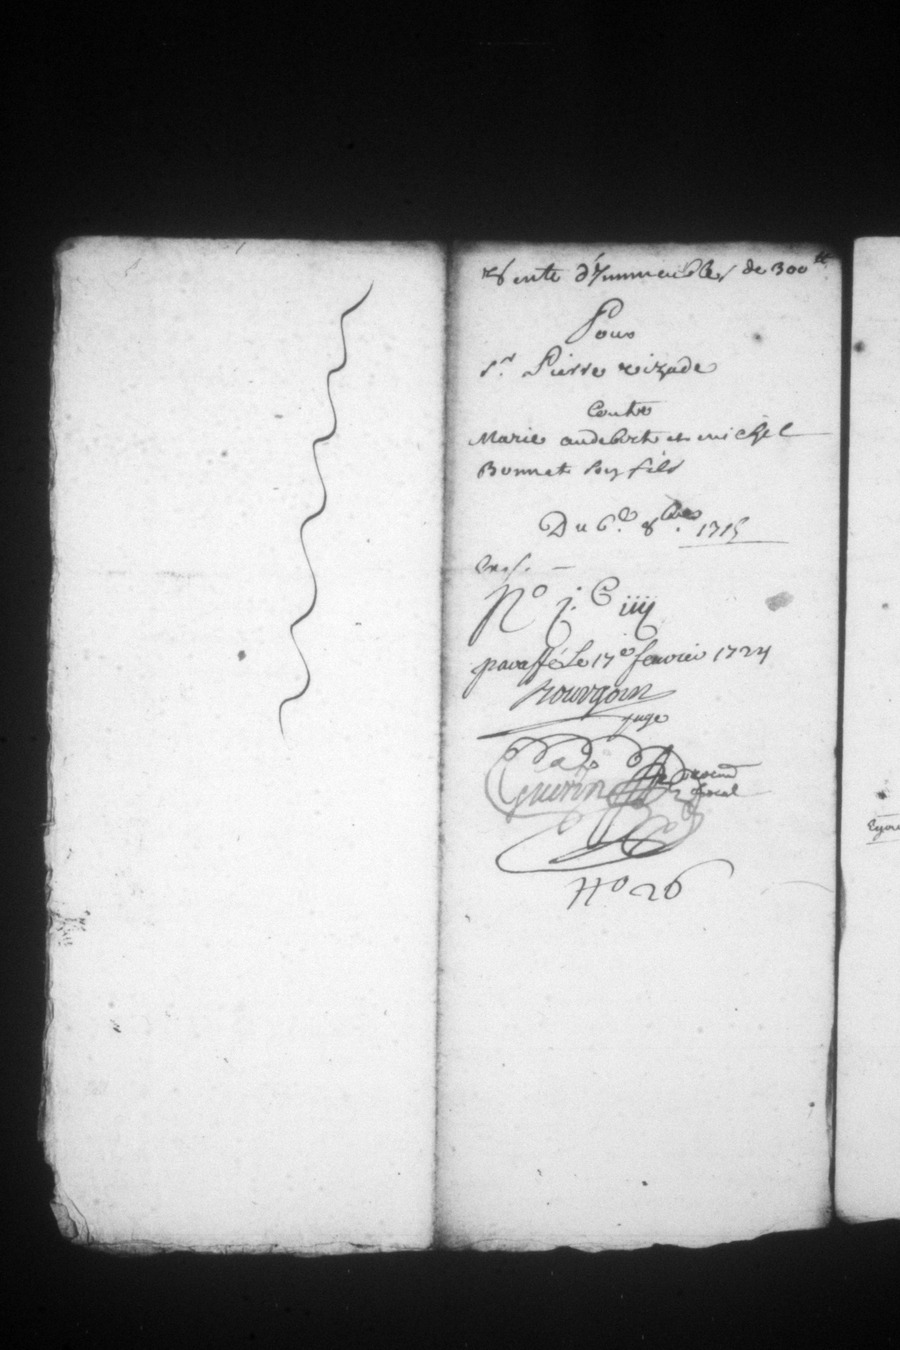 Vente d'Immeubles de 300 ᵗᵗ
Pour
Sr. Pierre rizade
Contre
Marie audebert et michel
Bonnet son fils
Du 6.e 8.bre 1715
No j. C iiij
paraffé Le 17e fevrier 1724
rouvgoin
juge
Guerin procureur
fiscal
No 26